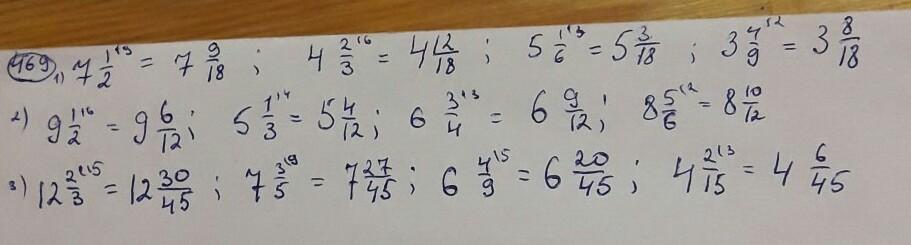 469 1) 7 1/2 ⁽⁹ = 7 9/18 ; 4 2/3 ⁽⁶ = 4 12/18 ; 5 1/6 ⁽³ = 5 3/18 ; 3 4/9 ⁽² = 3 8/18
2) 9 1/2 ⁽⁶ = 9 6/12 ; 5 1/3 ⁽⁴ = 5 4/12 ; 6 3/4 ⁽³ = 6 9/12 ; 8 5/6 ⁽² = 8 10/12
3) 12 2/3 ⁽¹⁵ = 12 30/45 ; 7 3/5 ⁽⁹ = 7 27/45 ; 6 4/9 ⁽⁵ = 6 20/45 ; 4 2/15 ⁽³ = 4 6/45